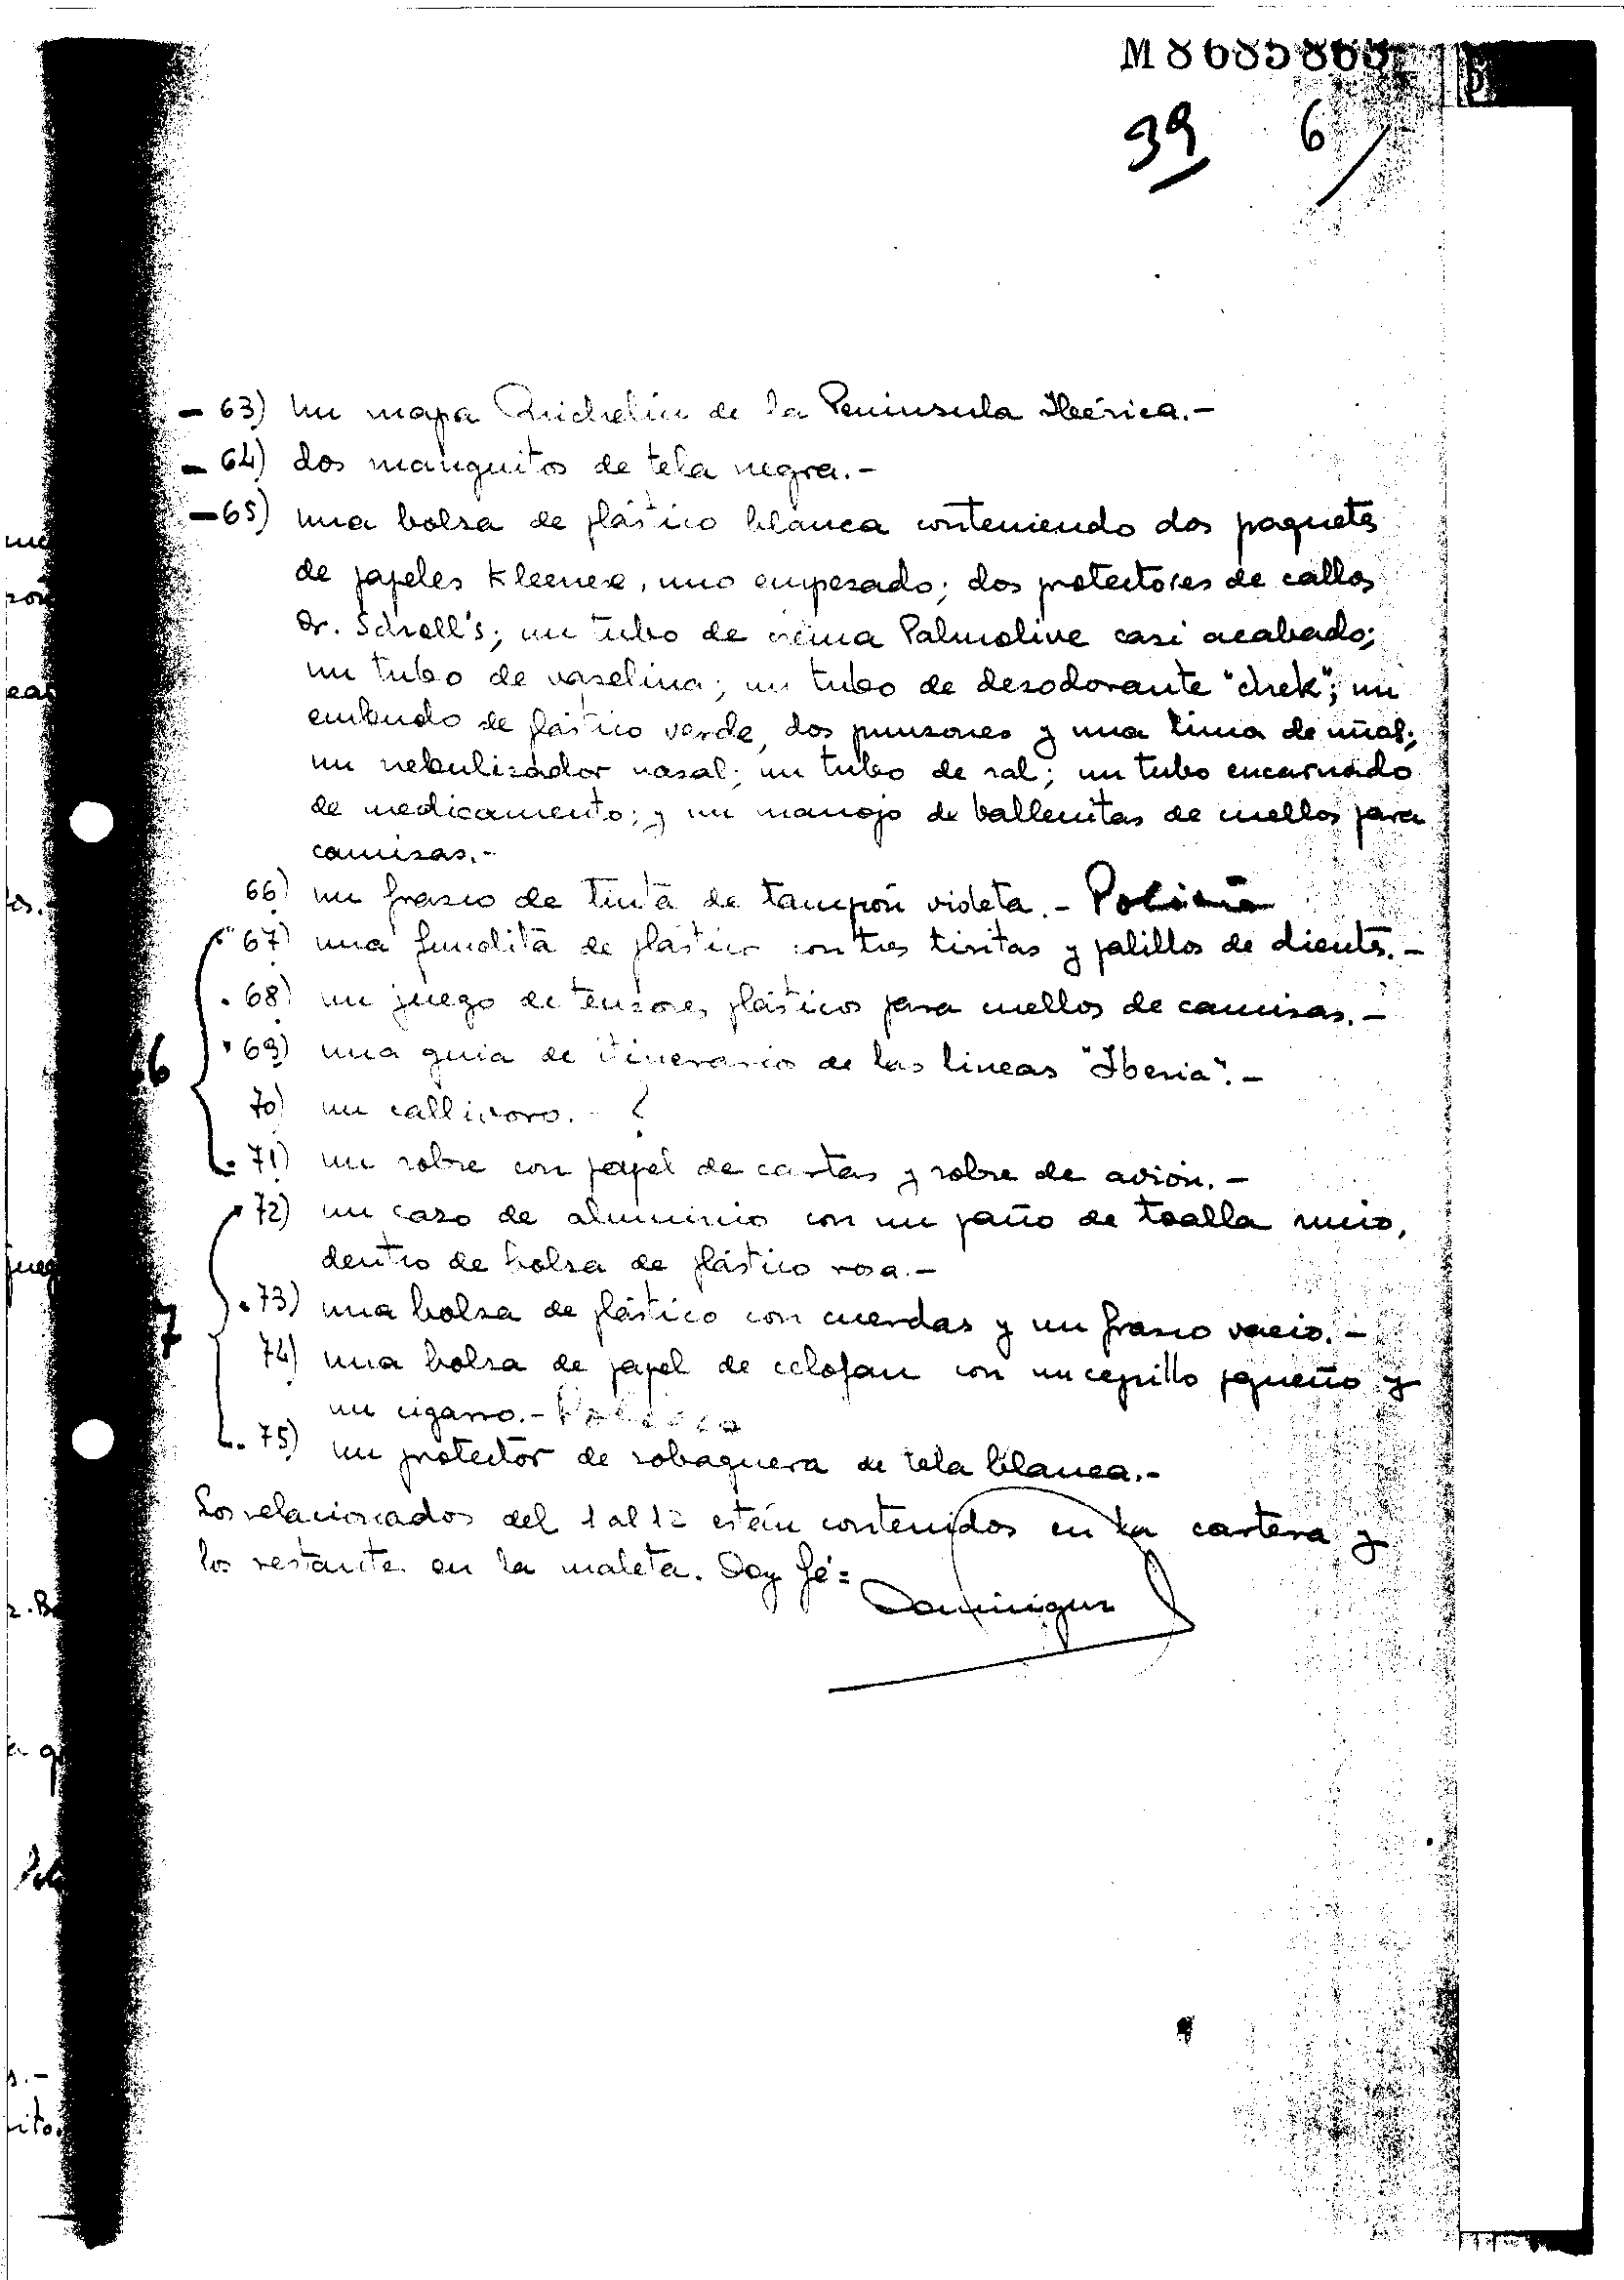 M8685865
39 6
- 63) un mapa Michelin de la Península Ibérica.-
- 64) dos manguitos de tela negra.-
- 65) una bolsa de plástico blanca conteniendo dos paquetes
de papeles Kleenex, uno empezado; dos protectores de callos
Dr. Scholl's; un tubo de crema Palmolive casi acabado;
un tubo de vaselina; un tubo de desodorante "chek"; un
embudo de plástico verde, dos punzones y una lima de uñas;
un nebulizador nasal; un tubo de sal; un tubo encarnado
de medicamento; y un manojo de ballenitas de cuellos para
camisas.-
66) un frasco de tinta de tampón violeta.- Policía
67) una fundita de plástico con tres tiritas y palillos de dientes.-
68) un juego de tensores plásticos para cuellos de camisas.-
69) una guia de itinerario de las lineas "Iberia".-
6
70) un callivoro.- ?
71) un sobre con papel de cartas y sobre de avión.-
72) un cazo de aluminio con un paño de toalla sucio,
dentro de bolsa de plástico rosa.-
73) una bolsa de plástico con cuerdas y un frasco vacio.-
7
74) una bolsa de papel de celofan con un cepillo pequeño y
un cigarro.- Policía
75) un protector de sobaquera de tela blanca.-
Los relacionados del 1 al 12 están contenidos en la cartera y
los restante en la maleta. Doy fé=